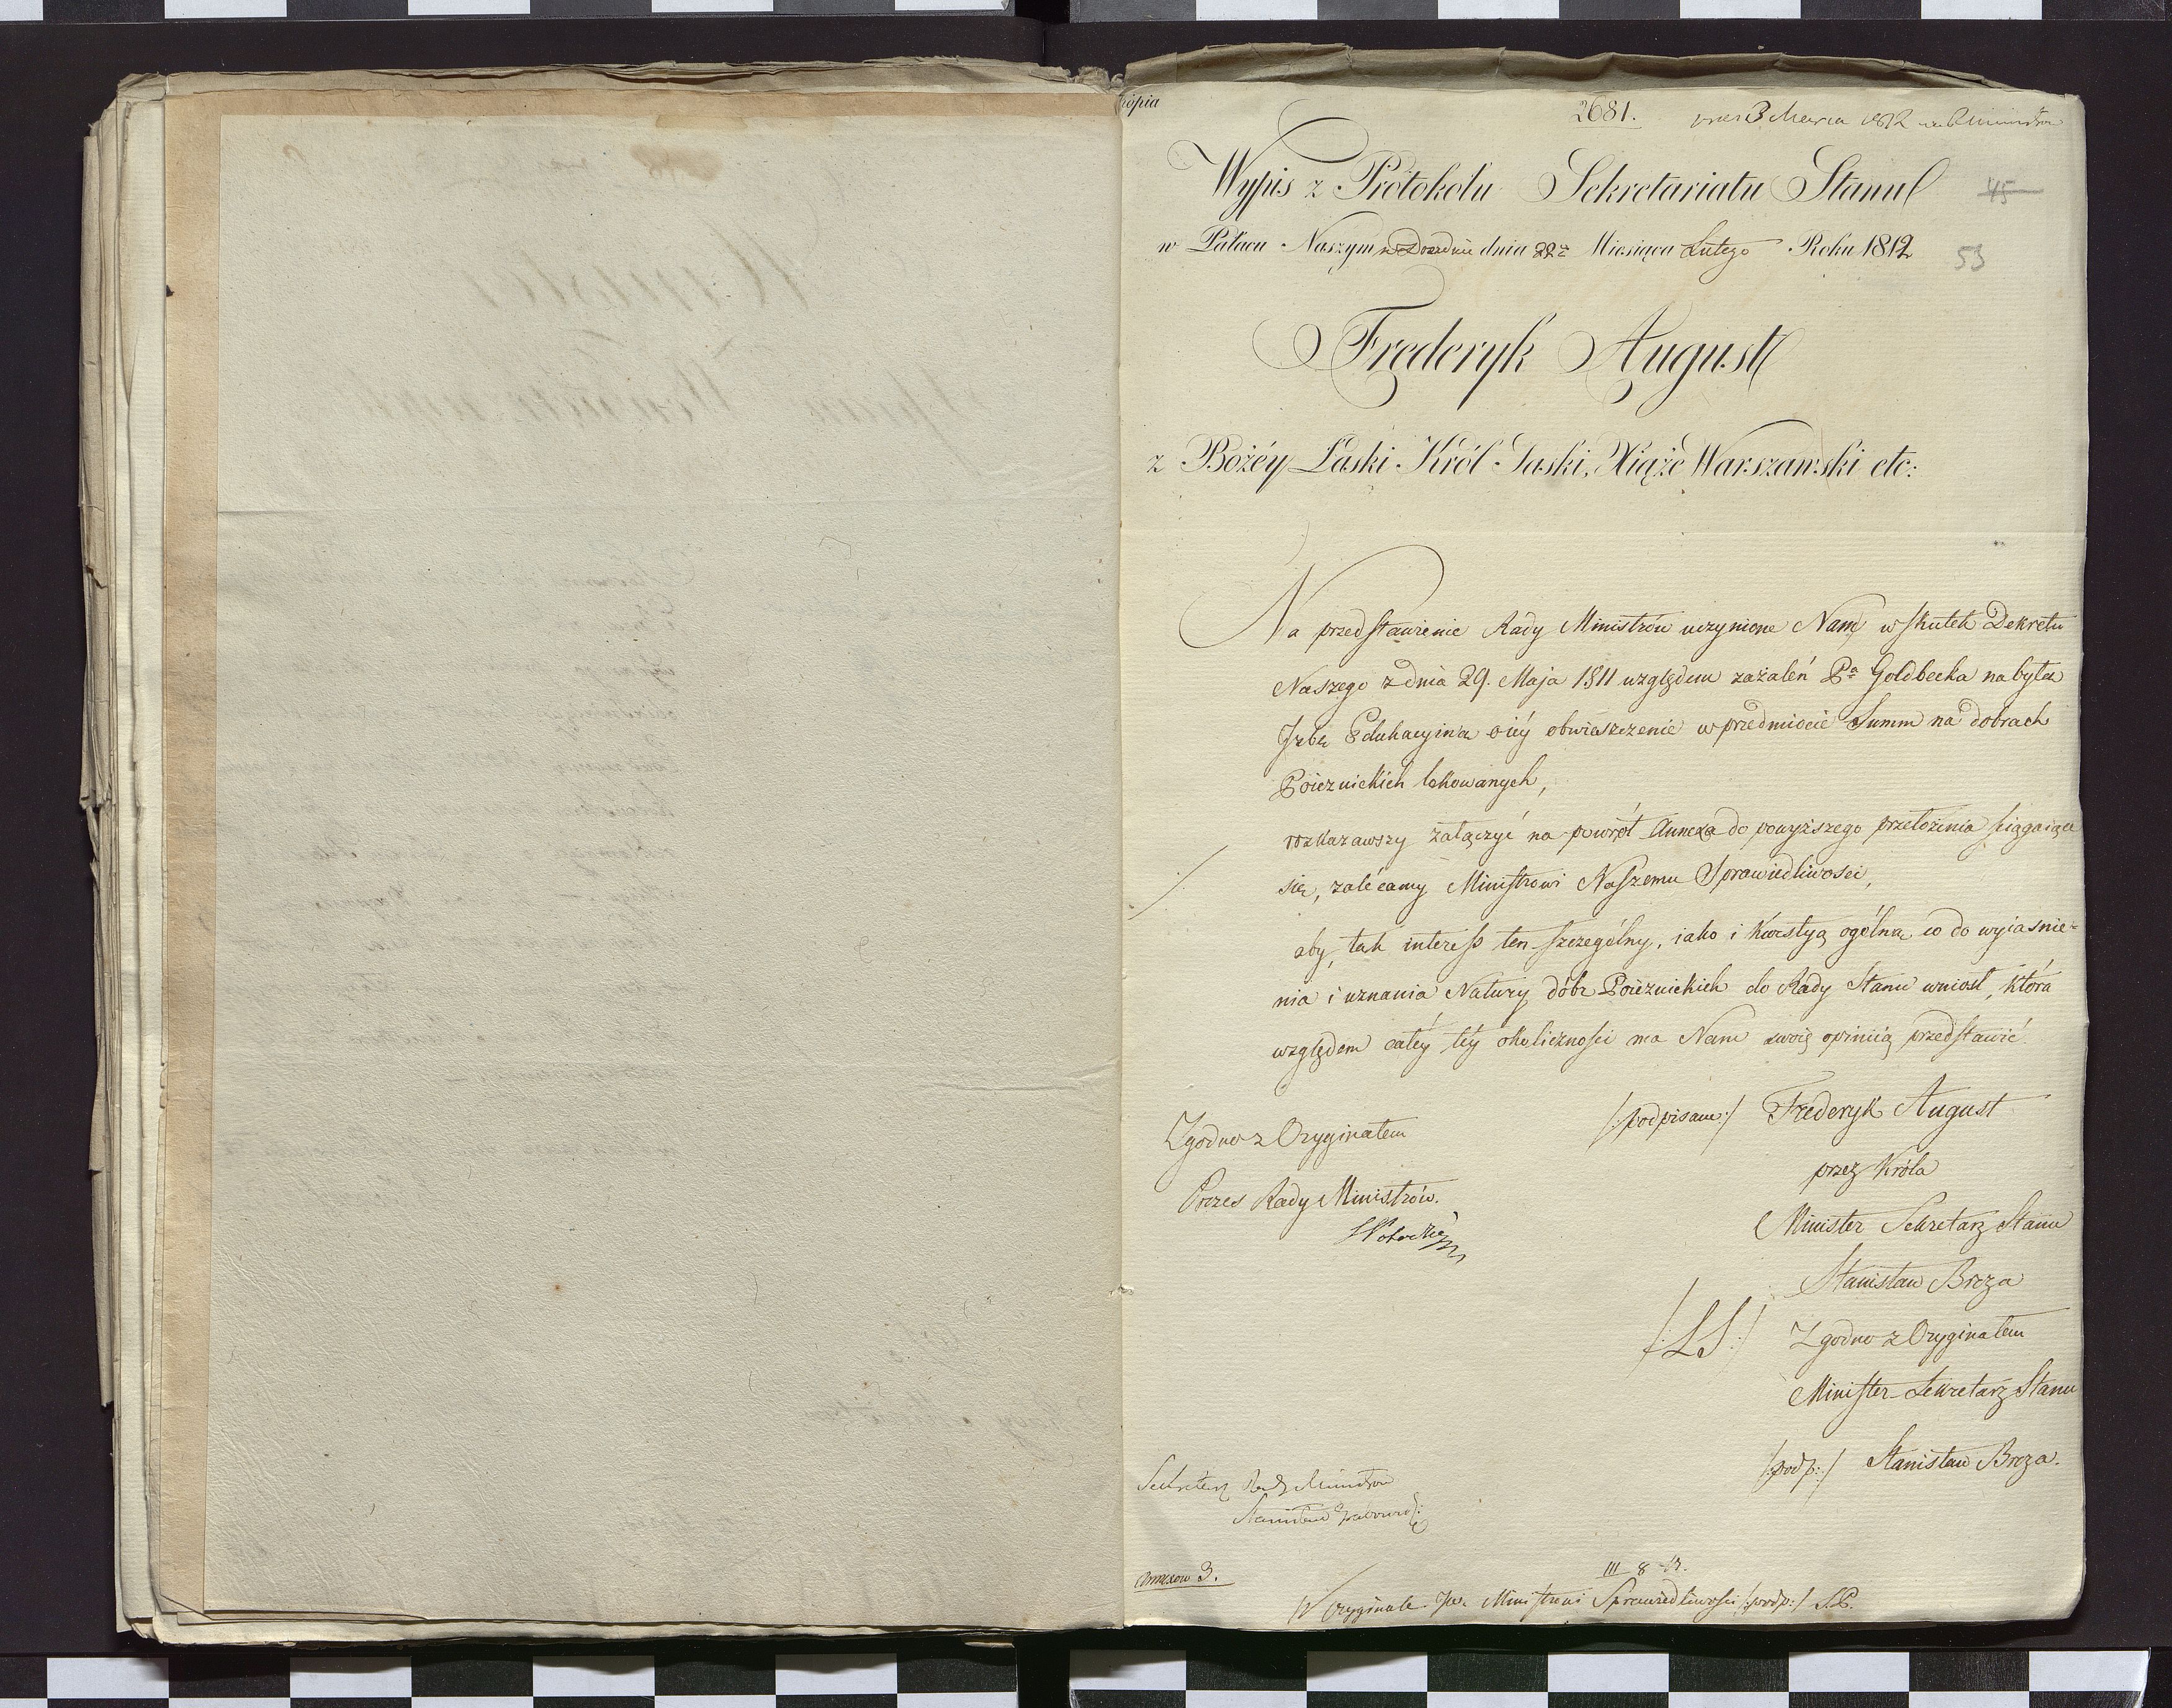 kopia
2681. pres 3 Marca 1812
Wypis z Protokołu Sekretariatu Stanu
45
w Pałacu Naszym w Dreznie dnia 22 Miesiąca Lutego Roku 1812
53
Frederyk August
z Bożéy Łaski Król Saski, Xiąże Warszawski etc:
Na przedstawienie Rady Ministrów uczynione Nam w skutek Dekretu
Naszego z dnia 29. Maja 1811 względem zażaleń Pa Goldbecka na byłą
Izbę Edukacyiną o iéy obwieszczenie w przedmiocie Summ na dobrach
Poiezuickich lokowanych,
rozkazawszy załączyć na powrót Annexa do powyższego przełożenia ściągaiące
się, zalécamy Ministrowi Naszemu Sprawiedliwości,
aby, tak interess ten szczególny, iako i kwestyą ogólną co do wyiaśnie=
nia i uznania Natury dóbr Poiezuickich do Rady Stanu wniosł, która
względem całéy téy okoliczności ma Nam swoię opinią przedstawić.
Zgodno z Oryginałem
/:podpisano:/ Frederyk August
przez Króla
Prezes Rady Ministrów.
Minister Sekretarz Stanu
S Potocki
Stanisław Breza
/:LS:/ Zgodno z Oryginałem
Minister Sekretarz Stanu
/:podp:/ Stanisław Breza.
Sekretarz Rady Ministrów
Stanisław Grabowski
annexów 3.
III 8
W Oryginale Jw. Ministrowi Sprawiedliwości /:podp:/ S.P.